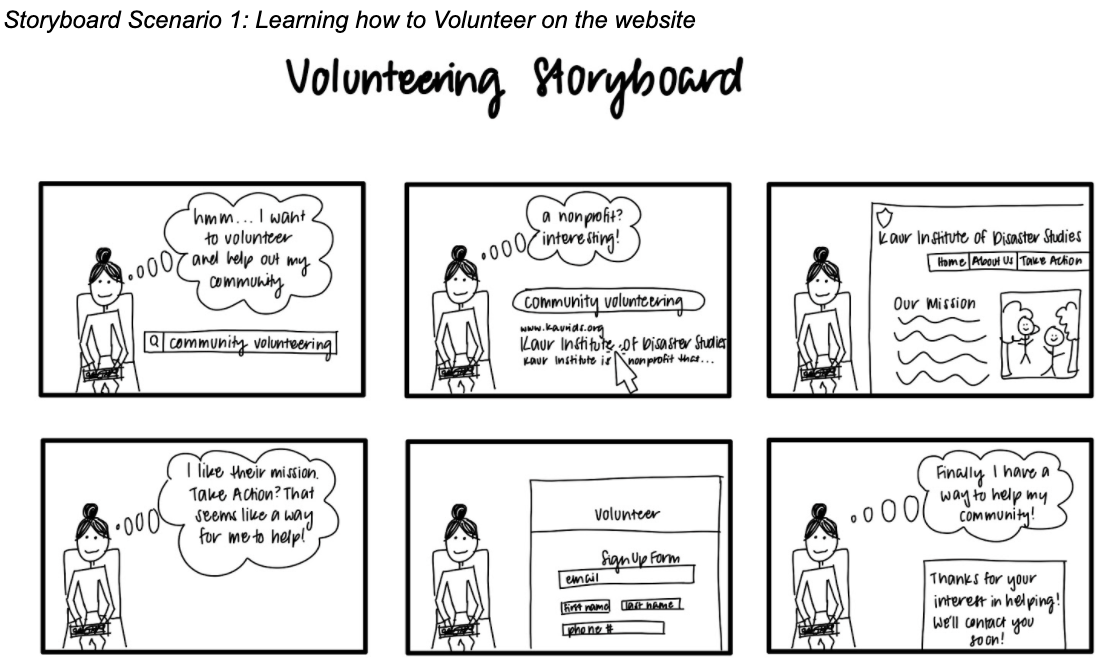 Storyboard Scenario 1: Learning how to Volunteer on the website
Volunteering Storyboard
hmm... I want
to volunteer
and help out my
community
community volunteering
a nonprofit?
interesting!
community volunteering
www.kaurids.org
Kaur Institute of Disaster Studies
Kaur Institute is nonprofit that...
Kaur Institute of Disaster Studies
Home About Us Take Action
Our Mission
I like their mission.
Take Action? That
seems like a way
for me to help!
Volunteer
Sign Up Form
email
first name last name
phone #
Finally I have a
way to help my
community!
Thanks for your
interest in helping!
We'll contact you
soon!